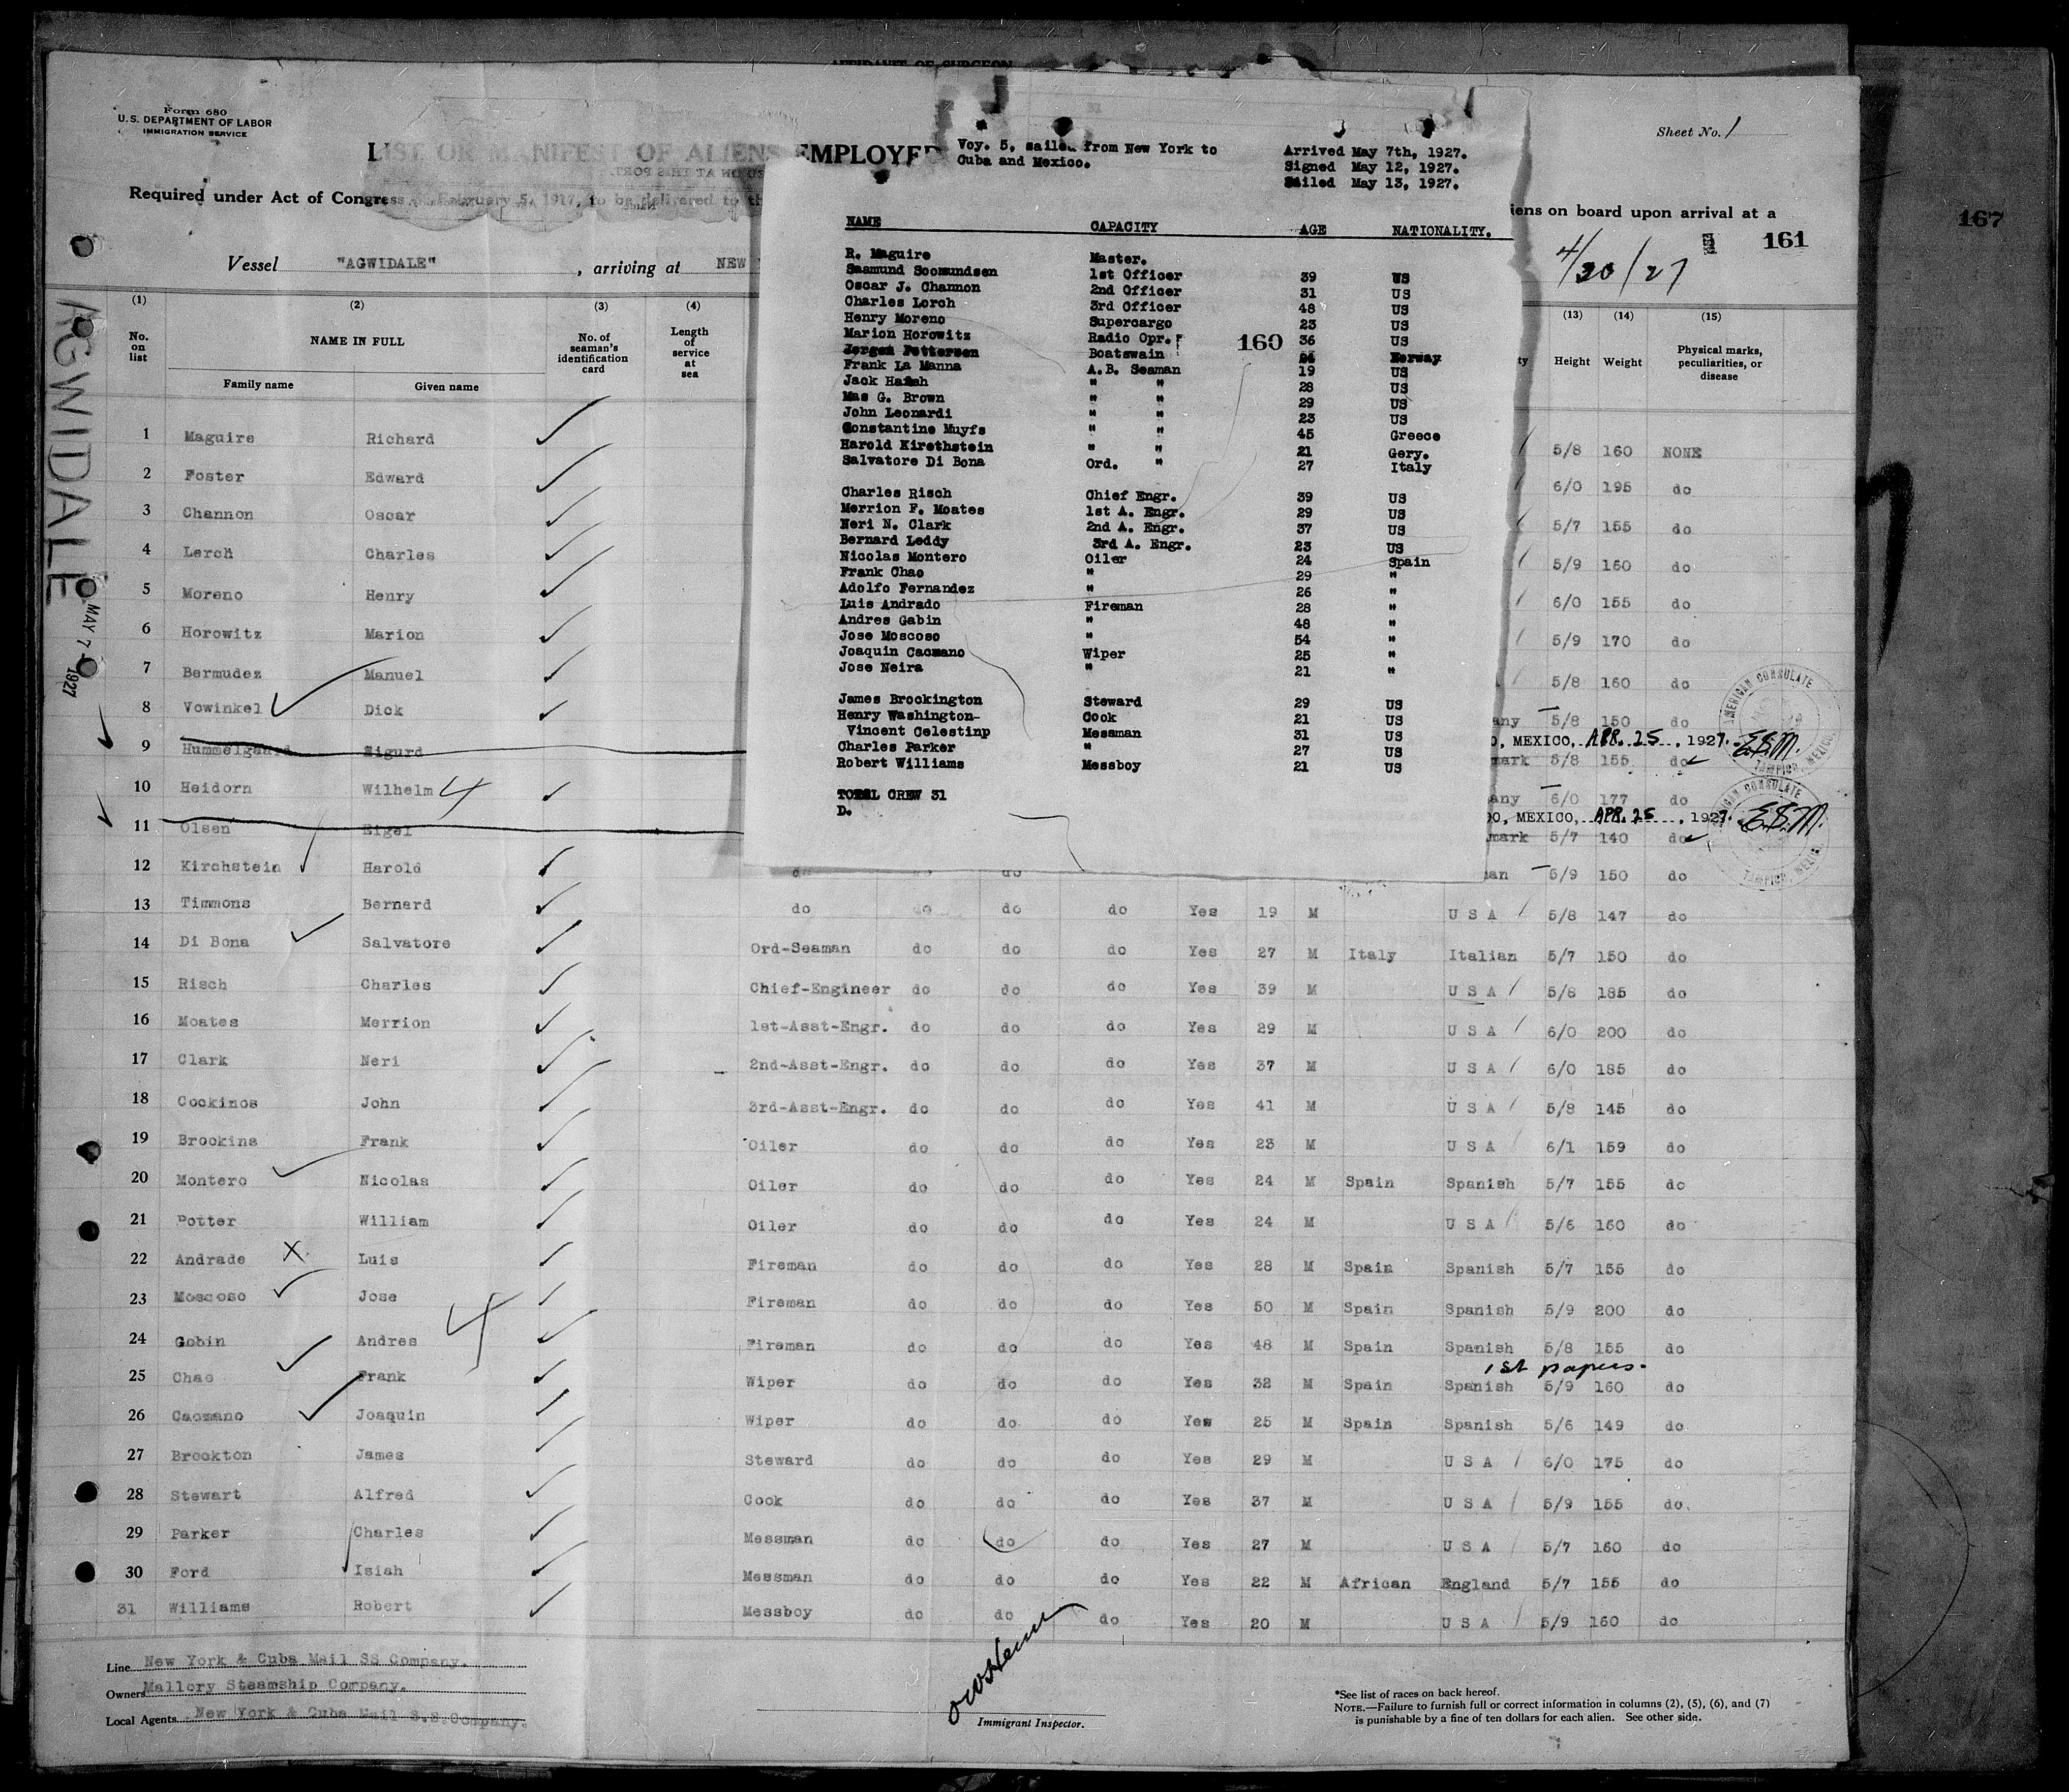 AFFIDAVIT OF SURGEON
Form 680
U.S. DEPARTMENT OF LABOR
IMMIGRATION SERVICE
Sheet No. 1
LIST OR MANIFEST OF ALIENS EMPLOYED
Required under Act of Congress February 5, 1917, to be delivered to th
iens on board upon arrival at a
4/20/27
161
167
Vessel "AGWIDALE", arriving at NEW
AGWIDALE
MAY 7 1927
Voy. 5, sailed from New York to
Cuba and Mexico.
Arrived May 7th, 1927.
Signed May 12, 1927.
Sailed May 13, 1927.
NAME CAPACITY AGE NATIONALITY.
R. Maguire Master.
Saamund Soomundsen 1st Officer 39 US
Oscar J. Channon 2nd Officer 31 US
Charles Lorch 3rd Officer 48 US
Henry Moreno Supercargo 23 US
Marion Horowitz Radio Opr. 36 US
160
Jorgen Pettersen Boatswain Norway
Frank La Manna A.B. Seaman 19 US
Jack " " 28 US
Mas G. Brown " " 29 US
John Leonardi " " 23 US
Constantine Muyfs " " 45 Greece
Harold Kirethstein " " 21 Gery.
Salvatore Di Bona Ord. " 27 Italy
Charles Risch Chief Engr. 39 US
Merrion F. Moates 1st A. Engr. 29 US
Neri N. Clark 2nd A. Engr. 37 US
Bernard Leddy 3rd A. Engr. 23 US
Nicolas Montero Oiler 24 Spain
Frank Chao " 29 "
Adolfo Fernandez " 26 "
Luis Andrado Fireman 28 "
Andres Gabin " 48 "
Jose Moscoso " 54 "
Joaquin Caomano Wiper 25 "
Jose Neira " 21 "
James Brockington Steward 29 US
Henry Washington- Cook 21 US
Vincent Celestinp Messman 31 US
Charles Parker " 27 US
Robert Williams Messboy 21 US
TOTAL CREW 31
D.
(1) (2) (3) (4) (13) (14) (15)
No. on list NAME IN FULL No. of seaman's identification card Length of service at sea Height Weight Physical marks, peculiarities, or disease
Family name Given name
1 Maguire Richard 5/8 160 NONE
2 Foster Edward 6/0 195 do
3 Channon Oscar 5/7 155 do
4 Lerch Charles 5/9 160 do
5 Moreno Henry 6/0 155 do
6 Horowitz Marion 5/9 170 do
7 Bermudez Manuel 5/8 160 do
8 Vowinkel Dick any 5/8 150 do
O, MEXICO, APR. 25, 1927. E.S.M.
9 Hummelgaard Sigurd mark 5/8 155 do
AMERICAN CONSULATE TAMPICO, MEXICO
10 Heidorn Wilhelm 4 any 6/0 177 do
O, MEXICO, APR. 25, 1927. E.S.M.
11 Olsen Eigel mark 5/7 140 do
AMERICAN CONSULATE TAMPICO, MEXICO
12 Kirchstein Harold do do do an 5/9 150 do
13 Timmons Bernard do do do do Yes 19 M U S A 5/8 147 do
14 Di Bona Salvatore Ord-Seaman do do do Yes 27 M Italy Italian 5/7 150 do
15 Risch Charles Chief-Engineer do do do Yes 39 M U S A 5/8 185 do
16 Moates Merrion 1st-Asst-Engr. do do do Yes 29 M U S A 6/0 200 do
17 Clark Neri 2nd-Asst-Engr. do do do Yes 37 M U S A 6/0 185 do
18 Cockinos John 3rd-Asst-Engr. do do do Yes 41 M U S A 5/8 145 do
19 Brockins Frank Oiler do do do Yes 23 M U S A 6/1 159 do
20 Montero Nicolas Oiler do do do Yes 24 M Spain Spanish 5/7 155 do
21 Potter William Oiler do do do Yes 24 M U S A 5/6 160 do
22 Andrade X Luis Fireman do do do Yes 28 M Spain Spanish 5/7 155 do
23 Moscoso Jose Fireman do do do Yes 50 M Spain Spanish 5/9 200 do
24 Gobin Andres 4 Fireman do do do Yes 48 M Spain Spanish 5/8 155 do
1st papers.
25 Chao Frank Wiper do do do Yes 32 M Spain Spanish 5/9 160 do
26 Caomano Joaquin Wiper do do do Yes 25 M Spain Spanish 5/6 149 do
27 Brookton James Steward do do do Yes 29 M U S A 6/0 175 do
28 Stewart Alfred Cook do do do Yes 37 M U S A 5/9 155 do.
29 Parker Charles Messman do do do Yes 27 M U S A 5/7 160 do
30 Ford Isiah Messman do do do Yes 22 M African England 5/7 155 do
31 Williams Robert Messboy do do do Yes 20 M U S A 5/9 160 do
Line New York & Cuba Mail SS Company.
Owners Mallory Steamship Company.
Local Agents New York & Cuba Mail S.S.Company.
Immigrant Inspector.
*See list of races on back hereof.
NOTE.—Failure to furnish full or correct information in columns (2), (5), (6), and (7)
is punishable by a fine of ten dollars for each alien. See other side.